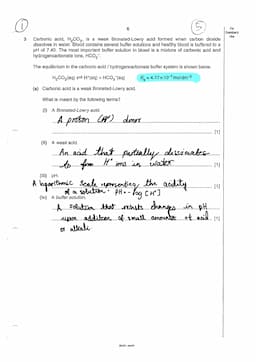 ① 6 ⑤
3 Carbonic acid, H₂CO₃, is a weak Brønsted-Lowry acid formed when carbon dioxide
dissolves in water. Blood contains several buffer solutions and healthy blood is buffered to a
pH of 7.40. The most important buffer solution in blood is a mixture of carbonic acid and
hydrogencarbonate ions, HCO₃⁻.
The equilibrium in the carbonic acid / hydrogencarbonate buffer system is shown below.
H₂CO₃(aq) ⇌ H⁺(aq) + HCO₃⁻(aq)
(a) Carbonic acid is a weak Brønsted-Lowry acid.
What is meant by the following terms?
(i) A Brønsted-Lowry acid.
A proton (H⁺) donor
[1]
(ii) A weak acid.
An acid that partially dissociates
to form H⁺ ions in water
[1]
(iii) pH.
A logarithmic scale representing the acidity
of a solution. pH = -log [H⁺]
[1]
(iv) A buffer solution.
A solution that resists changes in pH
upon addition of small amounts of acid
[1]
or alkali